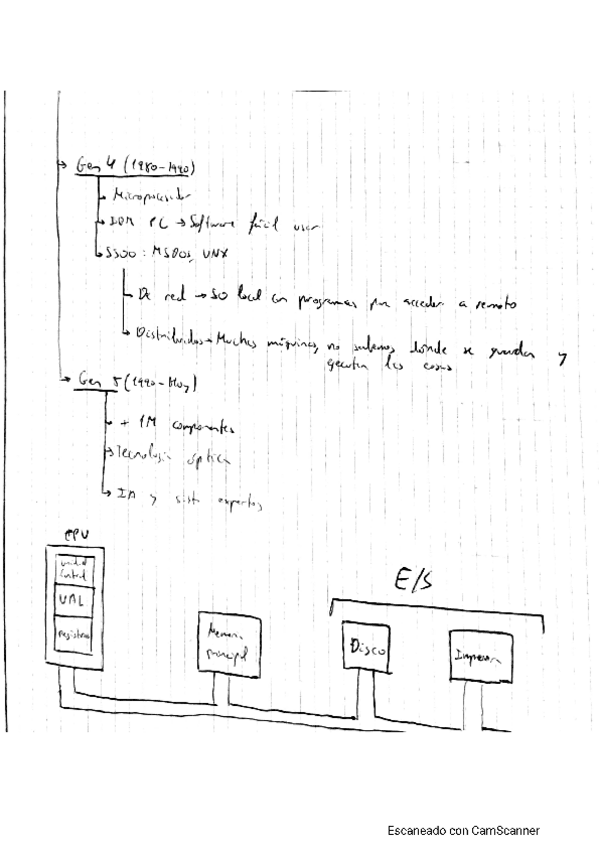 → Gen 4 (1980-1990)
→ Microprocesador
→ IBM PC → Software fácil usar
→ SSOO: MSDOS, UNX
→ De red → SO local con programas para acceder a remoto
→ Distribuidos → Muchas máquinas, no sabemos dónde se guardan y
ejecutan las cosas
→ Gen 5 (1990-Hoy)
→ + 1M componentes
→ Tecnología óptica
→ IA y sist expertos
CPU
unidad
Control
UAL
registros
Memoria
principal
E/S
Disco
Impresora
Escaneado con CamScanner